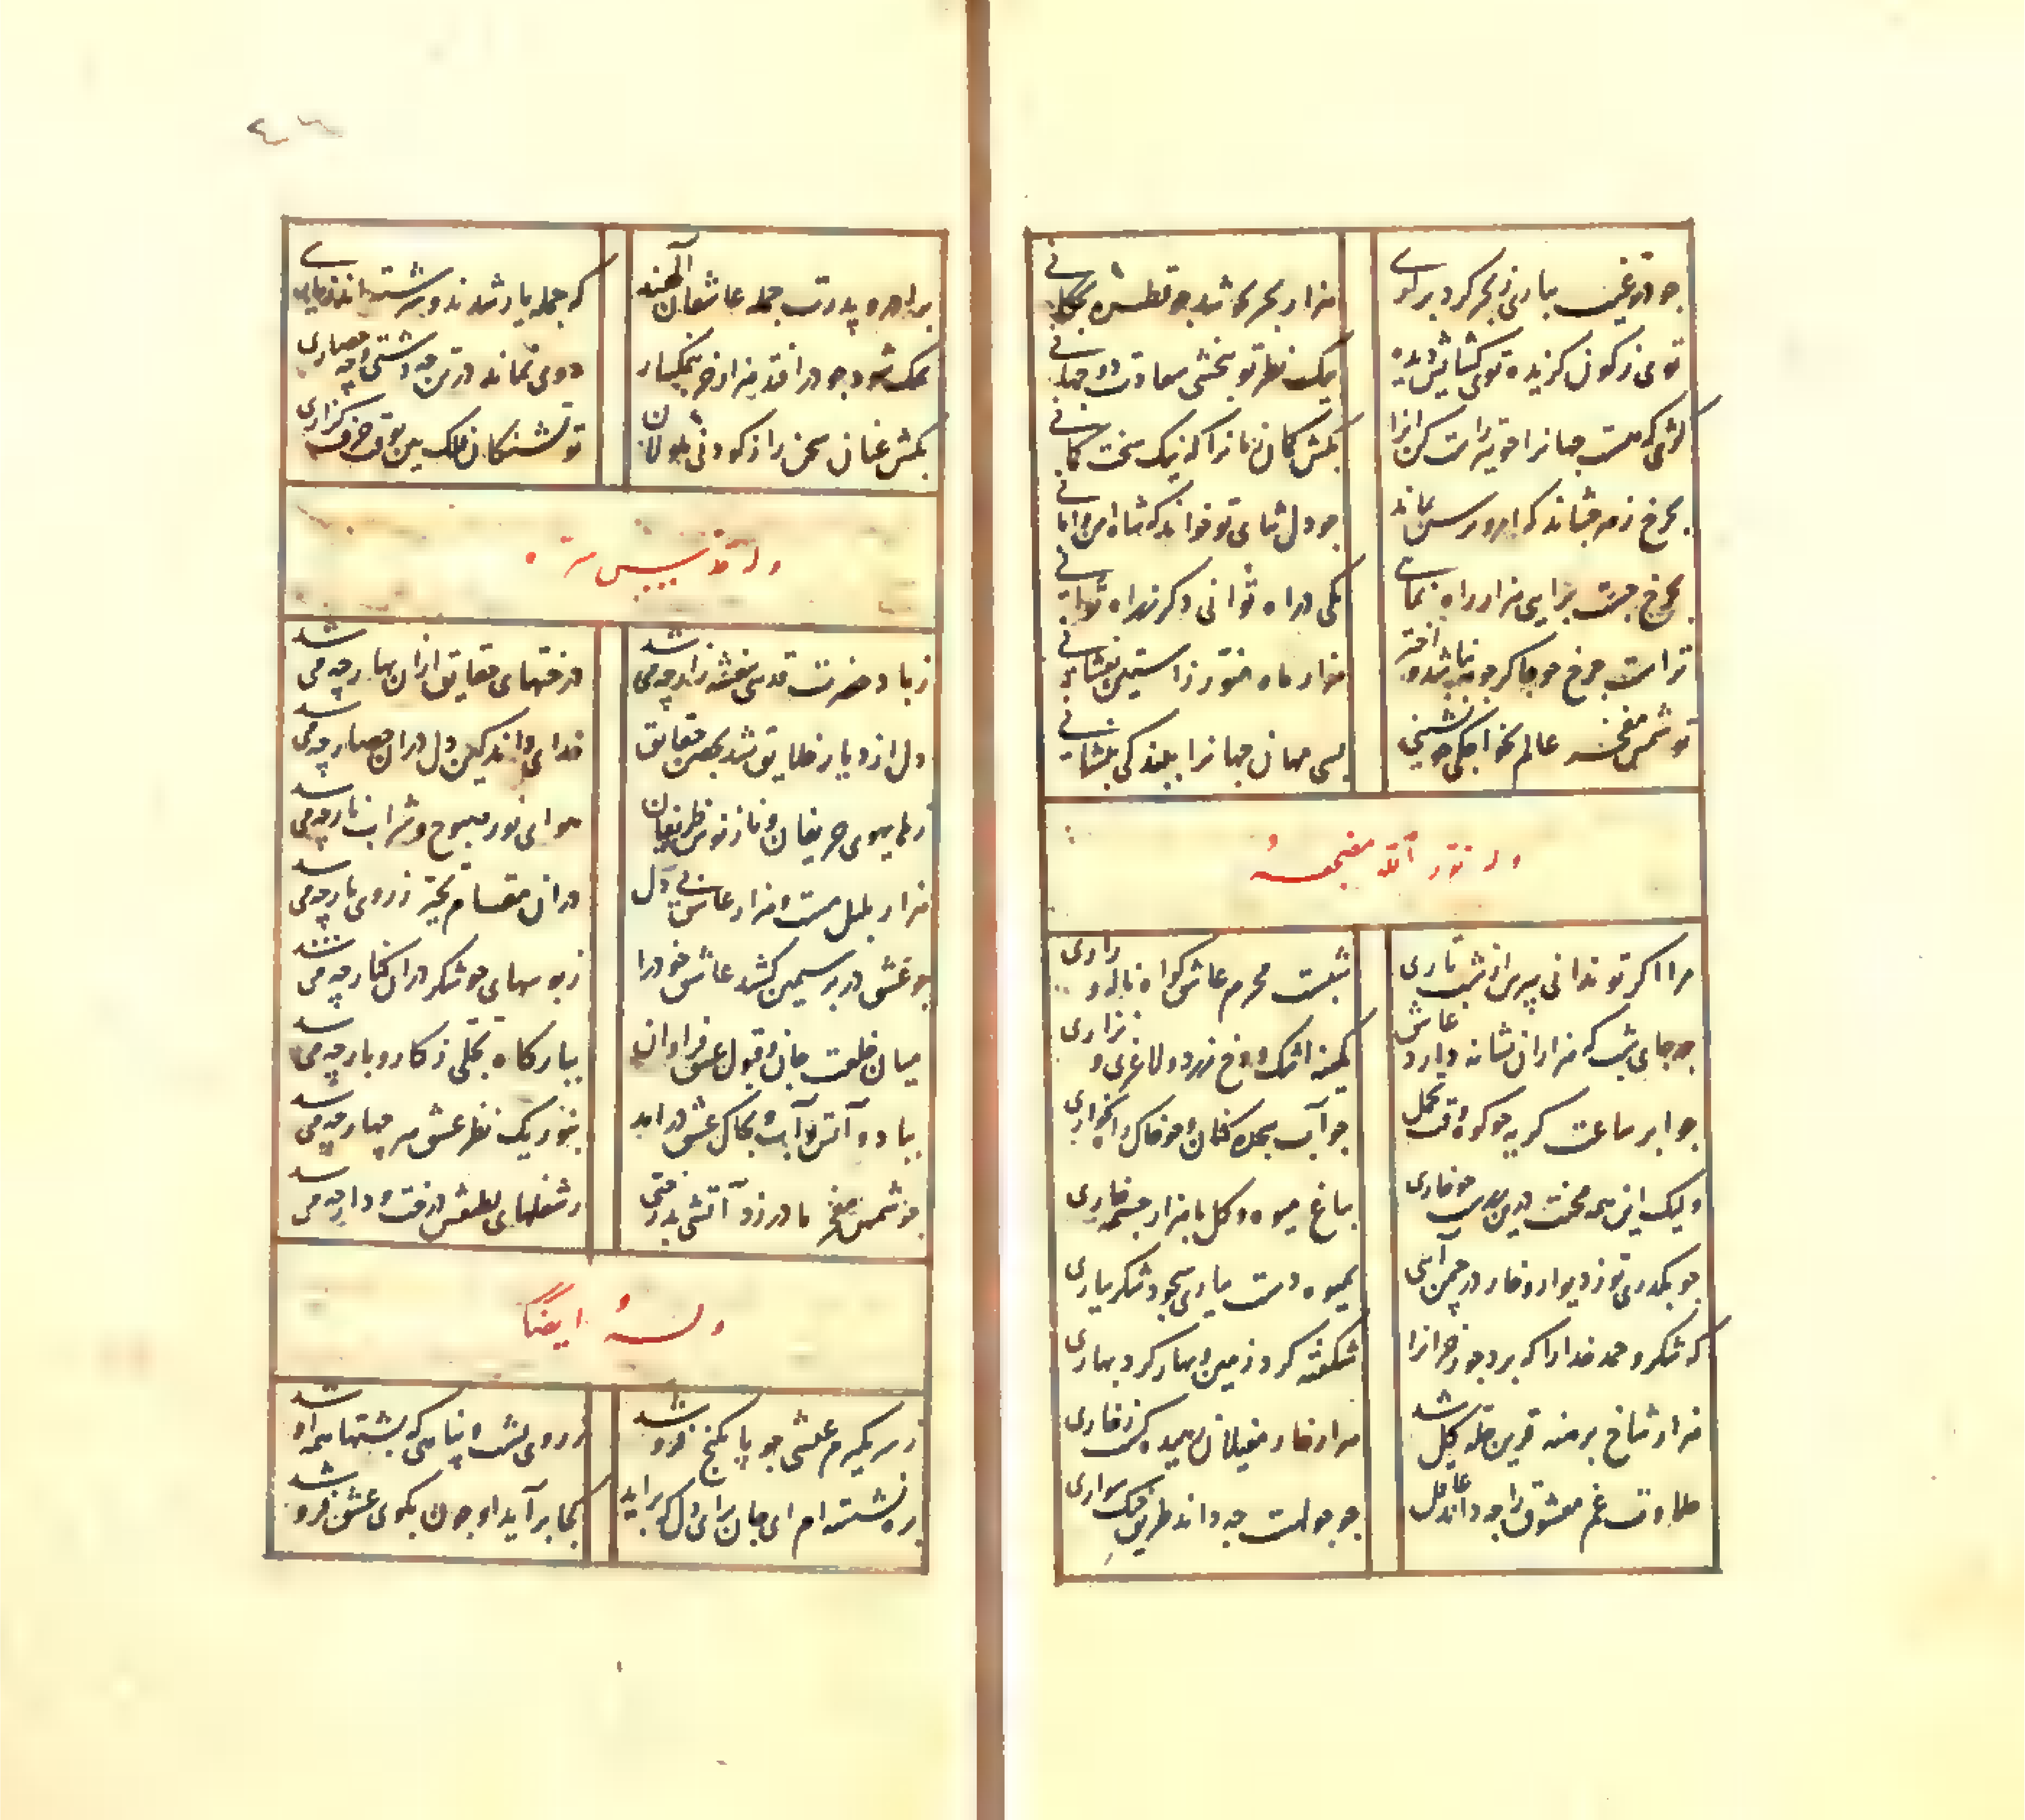 چو در غیب بیاری ز بحر کرد برآری
هزار بحر بجوشد چو قطره بچکانی
توی ز کون گزیده توی گشایش دیده
بیک نظر تو بخشی سعادت دو جهانی
کژی که هست جهانرا چو تیر راست کن آنرا
بکش کمان زمانرا که نیک سخت کمانی
بچرخ زمره
چو دل ثنای تو خواند که شاه امن و امانی
بچرخ سی هزار راه نمای
یکی در راه توانی دگر نهراه
تراست چرخ چو چاکر
هزار ماه منور ز آستین بفشانی
تو شمس مفخر عالم بخواجگی چو نشینی
بسی مهان جهانرا ببندگی بنشانی
وله نور الله مضجعه
مرا اگر تو ندانی بپرس از شب تاری
شبست محرم عاشق گواه ناله و زاری
چه جای شب که هزاران نشانه دارد عاشق
کمینه اشک و رخ زرد و لاغری و نزاری
چو ابر ساعت گریه چو کوه وقت تحمل
چو آب سجده کنان و چو خاک راه بخواری
ولیک این همه محنت بگرد باغ چو خاری
بباغ میوه و گل با هزار چشمه جاری
چو بگذری تو ز دیوار و خار در چمن آیی
بمیوه دست بیاری سجود شکر بیاری
که شکر و حمد خدا را که برد جور خزانرا
شکفته کرد زمین بهار کرد بهاری
هزار شاخ برهنه قرین حله گل شد
هزار خار مغیلان رهیده گشت ز خاری
حلاوت غم معشوق را چه داند عاقل
چو جولهست چه داند طریق جنگ سواری
برادر و پدرت جمله عاشقان آلهند
که جمله یار شدند و سرشته
نمک شود چو درافتد هزار خر بنمکسار
دوی نماند در تن چه دشتی و چه حصاری
بکش عنان سخن را ز کودنی ملولان
تو تشنگان ملک بین بوقت حرف گزاری
وله قدس سره
ز باد حضرت قدسی بنفشه زار چه می شد
درختهای حقایق از آن بهار چه می شد
دل از دیار خلایق شد بحصن حقایق
خدای داند کین دل در آن حصار چه می شد
ز های هوی حریفان و ناز و نوش ظریفان
هوای نور صبوح و شراب نار چه می شد
هزار بلبل مست و هزار عاشق بی دل
در آن مقام تحیر ز روی یار چه می شد
چو عشق در بر سیمین کشد عاشق خود را
ز بوسهای چو شکر در آن کنار چه می شد
میان خلعت جان و قبول عشق فراوان
ببارگاه تجلی ز کار و بار چه می شد
بباد و آتش و آب و بخاک عشق درآمد
بنور یک نظر عشق هر چهار چه می شد
چو شمس مفخر ما در زد آتشی بدرختی
ز شعلهای لطیفش درخت و دار چه می شد
وله ایضا
ز سر بگیرم عیشی چو پا بگنج فرو شد
ز روی پشت و پناهی که پشتها همه رو شد
بره نشسته ام ای جان برای دل که برآید
کجا برآید او چون بکوی عشق فرو شد